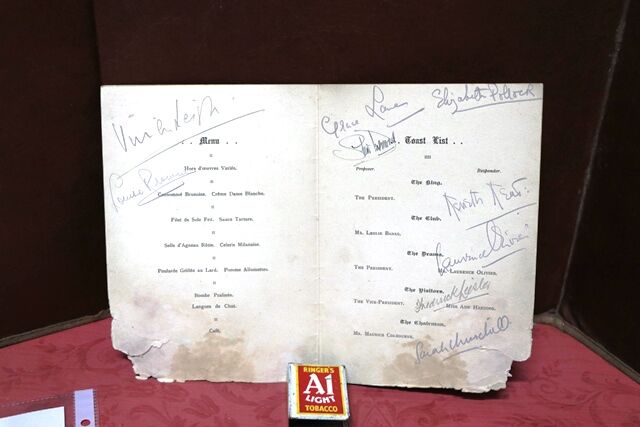 Vivien Leigh
. . Menu . .
Hors d'œuvres Variés.
Consommé Brunoise. Crême Dame Blanche.
Filet de Sole Frit. Sauce Tartare.
Selle d'Agneau Rôtie. Celeris Milanaise.
Poularde Grillée au Lard. Pommes Allumettes.
Bombe Pralinée.
Langues de Chat.
Café.
Grace Lane
Elizabeth Pollock
. . Toast List . .
Proposer. Responder.
The King.
The President.
The Club.
Mr. Leslie Banks.
The Drama.
Laurence Olivier
The President. Mr. Laurence Olivier.
The Visitors.
Frederick Leister
The Vice-President. Miss Ann Harding.
The Chairman.
Mr. Maurice Colbourne.
Sarah Churchill
RINGER'S
A1
LIGHT
TOBACCO